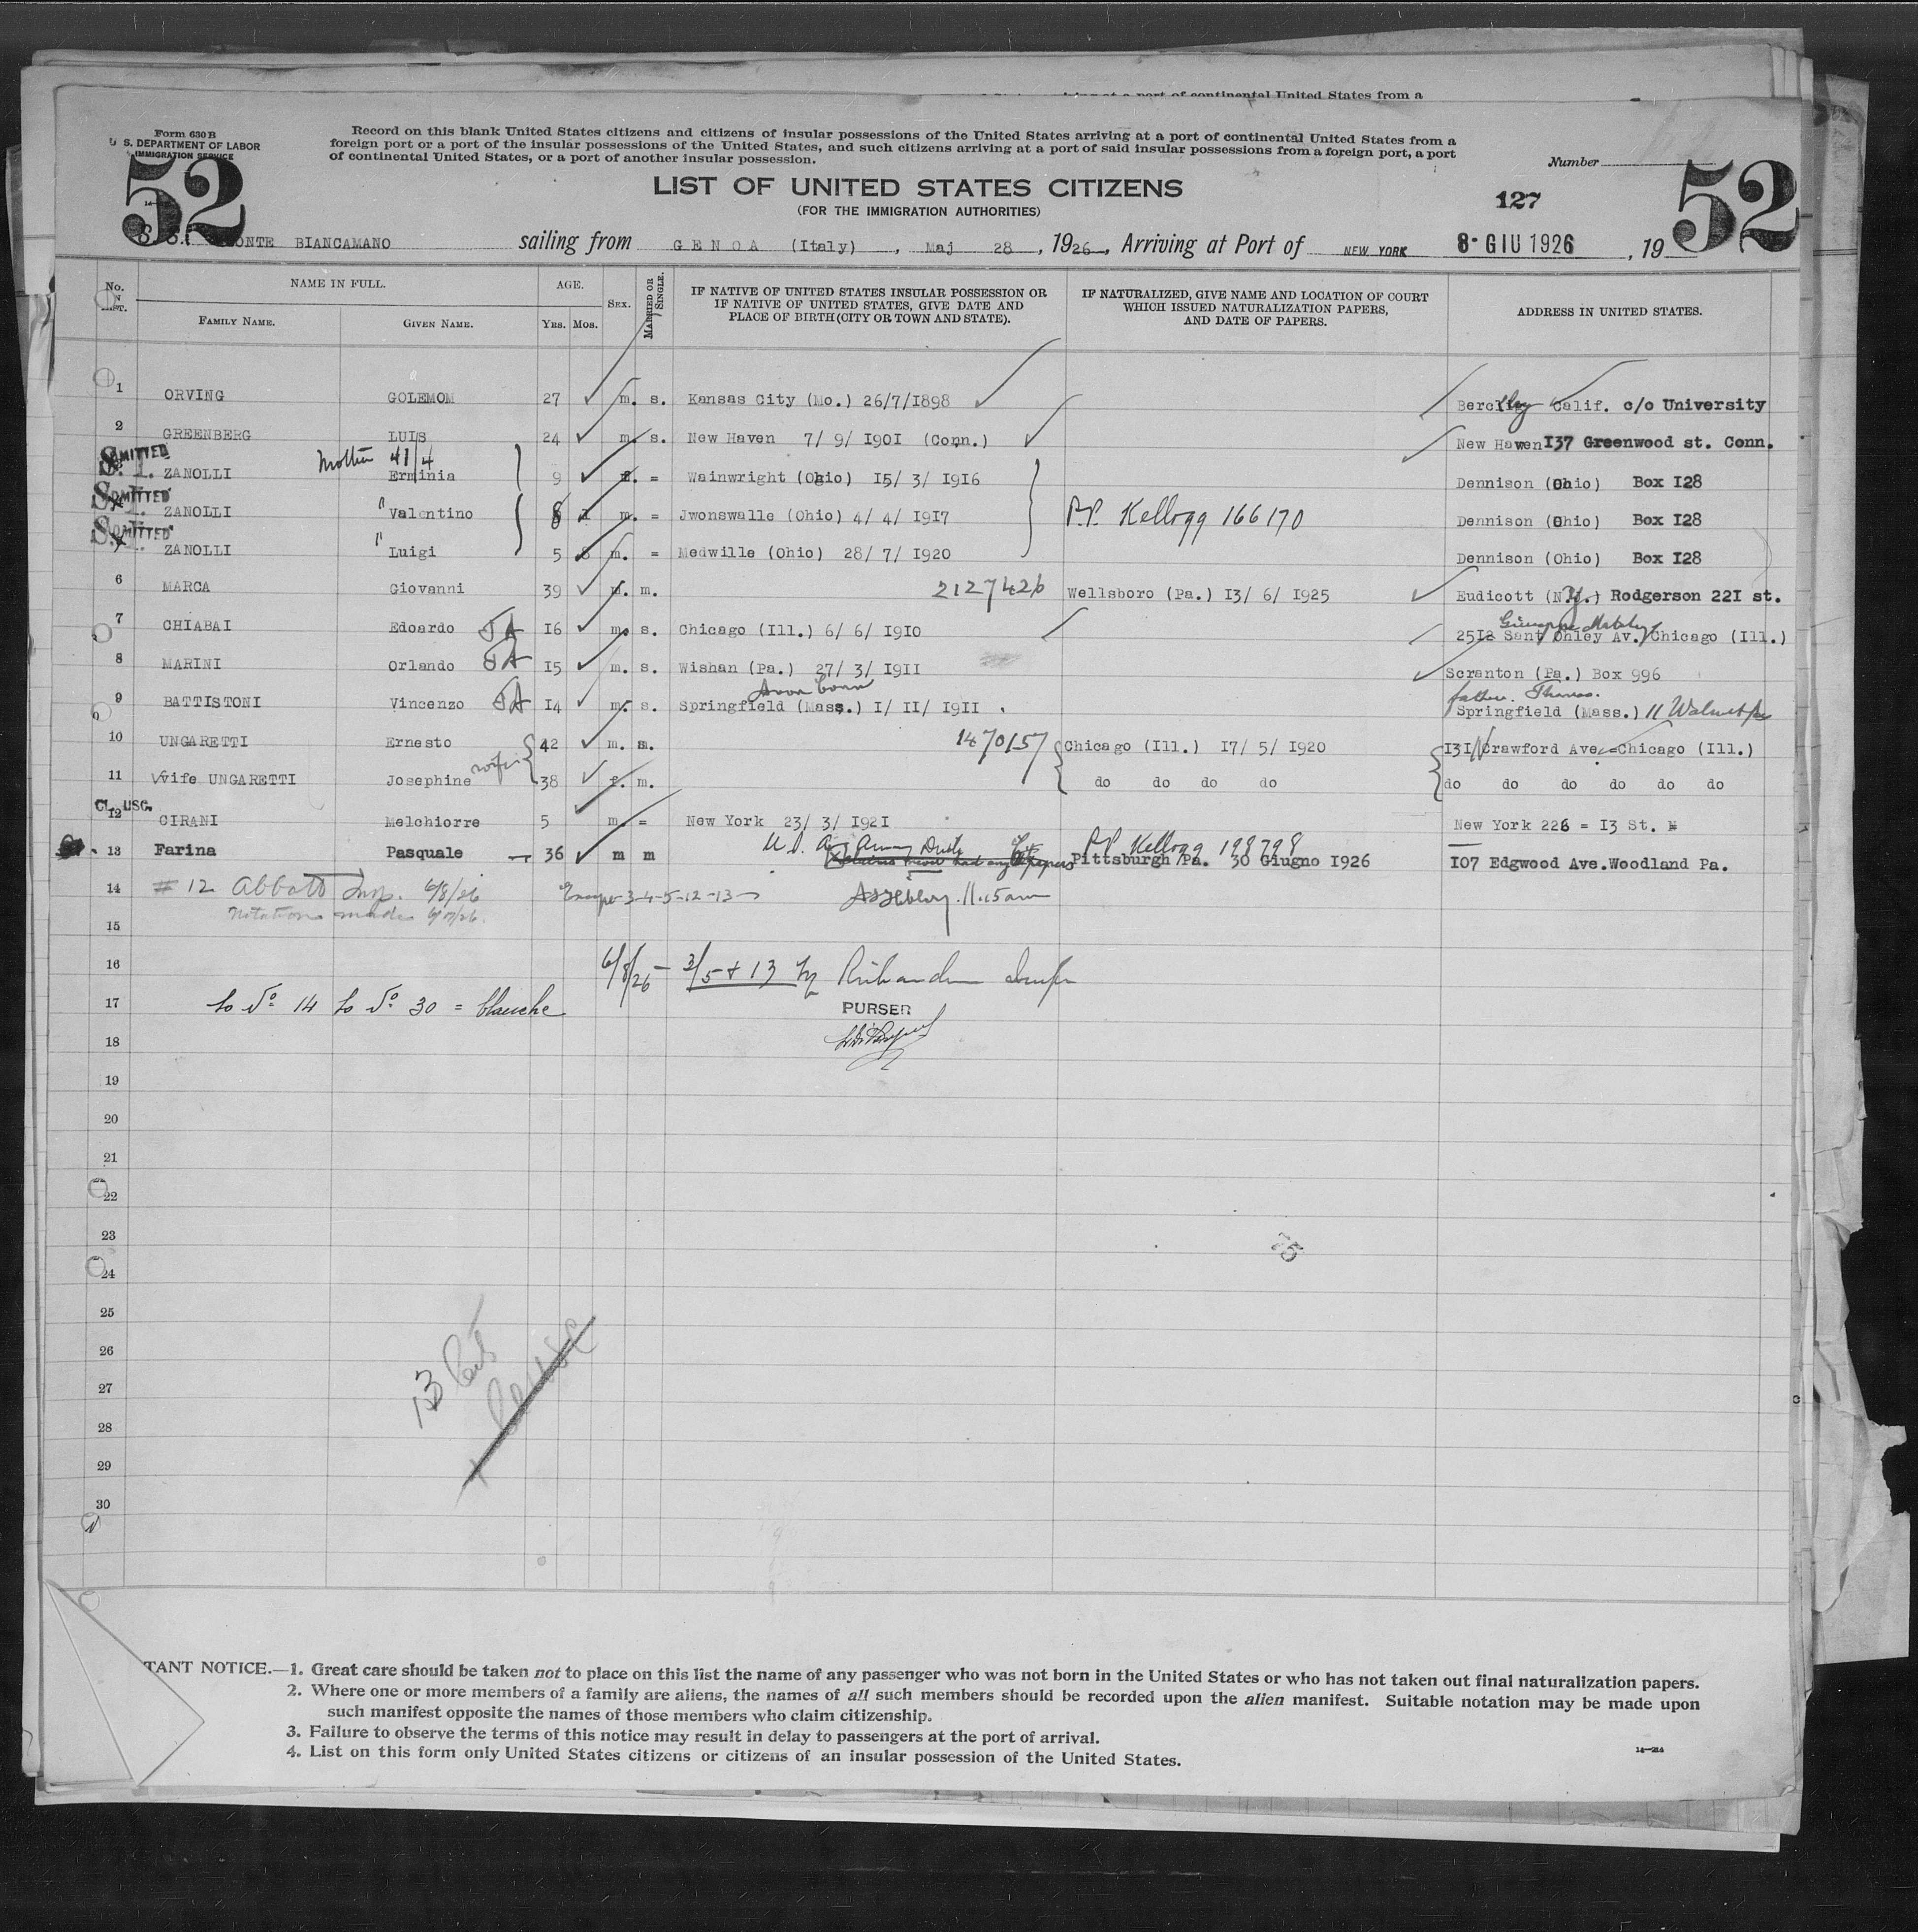 Form 630 B
S. DEPARTMENT OF LABOR
IMMIGRATION SERVICE
Record on this blank United States citizens and citizens of insular possessions of the United States arriving at a port of continental United States from a
foreign port or a port of the insular possessions of the United States, and such citizens arriving at a port of said insular possessions from a foreign port, a port
of continental United States, or a port of another insular possession.
Number
52
52
LIST OF UNITED STATES CITIZENS
127
(FOR THE IMMIGRATION AUTHORITIES)
S. S. CONTE BIANCAMANO sailing from GENOA (Italy), Maj 28, 1926, Arriving at Port of NEW YORK 8 - GIU 1926, 19
No. IN LIST. NAME IN FULL. AGE. SEX. MARRIED OR SINGLE. IF NATIVE OF UNITED STATES INSULAR POSSESSION OR IF NATIVE OF UNITED STATES, GIVE DATE AND PLACE OF BIRTH (CITY OR TOWN AND STATE). IF NATURALIZED, GIVE NAME AND LOCATION OF COURT WHICH ISSUED NATURALIZATION PAPERS, AND DATE OF PAPERS. ADDRESS IN UNITED STATES.
FAMILY NAME. GIVEN NAME. YRS. MOS.
1 ORVING GOLEMOM 27 m. s. Kansas City (Mo.) 26/7/I898 Berckley Calif. c/o University
2 GREENBERG LUIS 24 m. s. New Haven 7/ 9/ I90I (Conn.) New Haven I37 Greenwood st. Conn.
ADMITTED Mother 41/4
S.I. ZANOLLI Erminia 9 f. = Wainwright (Ohio) I5/ 3/ I9I6 Dennison (Ohio) Box I28
ADMITTED
ZANOLLI " Valentino 8 m. = Jwonswalle (Ohio) 4/ 4/ I9I7 P.P. Kellogg 166170 Dennison (Ohio) Box I28
ADMITTED
ZANOLLI " Luigi 5 8 m. = Medwille (Ohio) 28/ 7/ I920 Dennison (Ohio) Box I28
6 MARCA Giovanni 39 m. m. 2127426 Wellsboro (Pa.) I3/ 6/ I925 Eudicott (N.Y.) Rodgerson 22I st.
7 CHIABAI Edoardo I6 m. s. Chicago (Ill.) 6/ 6/ I9I0 25I8 Sant Ohley Av. Chicago (Ill.)
8 MARINI Orlando I5 m. s. Wishan (Pa.) 27/ 3/ I9II Scranton (Pa.) Box 996
Avon Conn father Thomas.
9 BATTISTONI Vincenzo I4 m. s. Springfield (Mass.) I/ II/ I9II . Springfield (Mass.) 11 Walnut
10 UNGARETTI Ernesto 42 m. m. 1470157 Chicago (Ill.) I7/ 5/ I920 I3I N Crawford Ave. Chicago (Ill.)
11 wife UNGARETTI Josephine wife 38 f. m. do do do do do do do do do do
CT. USC.
12 CIRANI Melchiorre 5 m. = New York 23/ 3/ I92I New York 226 = I3 St.
P.P. Kellogg 198798
13 Farina Pasquale 36 m m Pittsburgh Pa. 30 Giugno I926 I07 Edgwood Ave.Woodland Pa.
14 # 12 Abbott Insp. 6/8/26 3-4-5-12-13 11.15 am
Notation made
15
16 6/8/26 - 3/5 + 13
17 to No 14 to No 30 = blanche PURSER
18
19
20
21
22
23
24
25
26
27
28
29
30
75
TANT NOTICE.—1. Great care should be taken not to place on this list the name of any passenger who was not born in the United States or who has not taken out final naturalization papers.
2. Where one or more members of a family are aliens, the names of all such members should be recorded upon the alien manifest. Suitable notation may be made upon
such manifest opposite the names of those members who claim citizenship.
3. Failure to observe the terms of this notice may result in delay to passengers at the port of arrival.
4. List on this form only United States citizens or citizens of an insular possession of the United States.
14—214